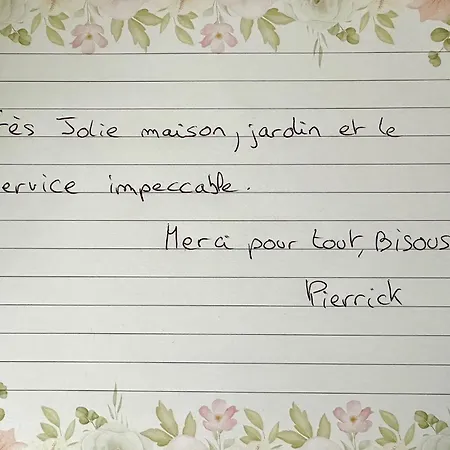 rès Jolie maison, jardin et le
ervice impeccable.
Merci pour tout, Bisous
Pierrick